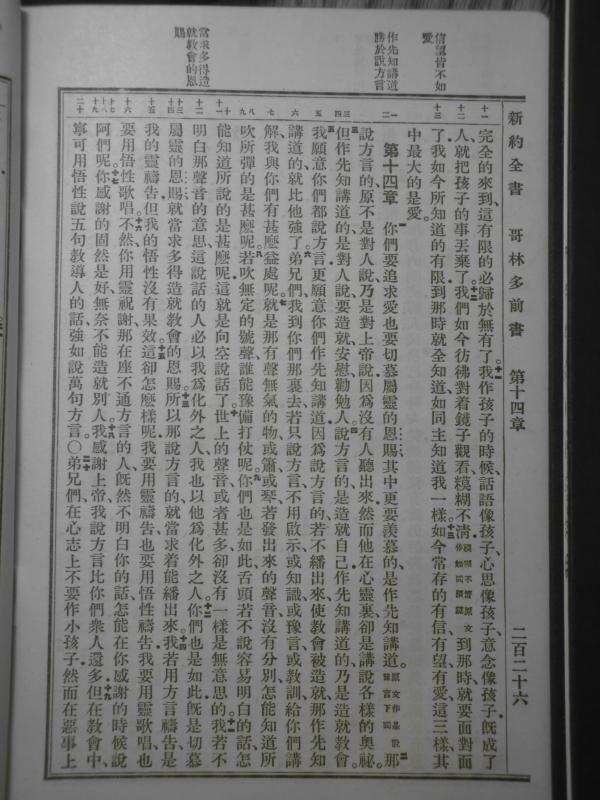 新約全書　哥林多前書　第十四章　二百二十六
信望皆不如愛
作先知講道勝於說方言
當求多得造就教會的恩賜
完全的來到、這有限的必歸於無有了。十一我作孩子的時候、話語像孩子、心思像孩子、意念像孩子。既成了
人、就把孩子的事丟棄了。十二我們如今彷彿對着鏡子觀看、糢糊不清、到那時就要面對面
了。我如今所知道的有限、到那時就全知道、如同主知道我一樣。十三如今常存的有信、有望、有愛、這三樣、其
中最大的是愛。
第十四章　一你們要追求愛、也要切慕屬靈的恩賜、其中更要羨慕的、是作先知講道。二那
說方言的、原不是對人說、乃是對上帝說、因爲沒有人聽出來、然而他在心靈裏、卻是講說各樣的奧祕。
三但作先知講道的、是對人說、要造就、安慰、勸勉人。四說方言的、是造就自己、作先知講道的、乃是造就教會。
五我願意你們都說方言、更願意你們作先知講道、因爲說方言的、若不繙出來、使教會被造就、那作先知
講道的、就比他強了。六弟兄們、我到你們那裏去、若只說方言、不用啟示、或知識、或豫言、或教訓、給你們講
解、我與你們有甚麽益處呢。七就是那有聲無氣的物、或簫、或琴、若發出來的聲音、沒有分別、怎能知道所
吹所彈的是甚麽呢。八若吹無定的號聲、誰能豫備打仗呢。九你們也是如此、舌頭若不說容易明白的話、怎
能知道所說的是甚麽呢。這就是向空說話了。十世上的聲音、或者甚多、卻沒有一樣是無意思的。十一我若不
明白那聲音的意思、這說話的人必以我爲化外之人、我也以他爲化外之人。十二你們也是如此、既是切慕
屬靈的恩賜、就當求多得造就教會的恩賜。十三所以那說方言的、就當求着能繙出來。十四我若用方言禱告、是
我的靈禱告、但我的悟性沒有果效。十五這卻怎麽樣呢、我要用靈禱告、也要用悟性禱告、我要用靈歌唱、也
要用悟性歌唱。十六不然、你用靈祝謝、那在座不通方言的人、既然不明白你的話、怎能在你感謝的時候說
阿們呢。十七你感謝的固然是好、無奈不能造就別人。十八我感謝上帝、我說方言比你們衆人還多。十九但在教會中、
寧可用悟性說五句教導人的話、強如說萬句方言。○二十弟兄們、在心志上不要作小孩子、然而在惡事上